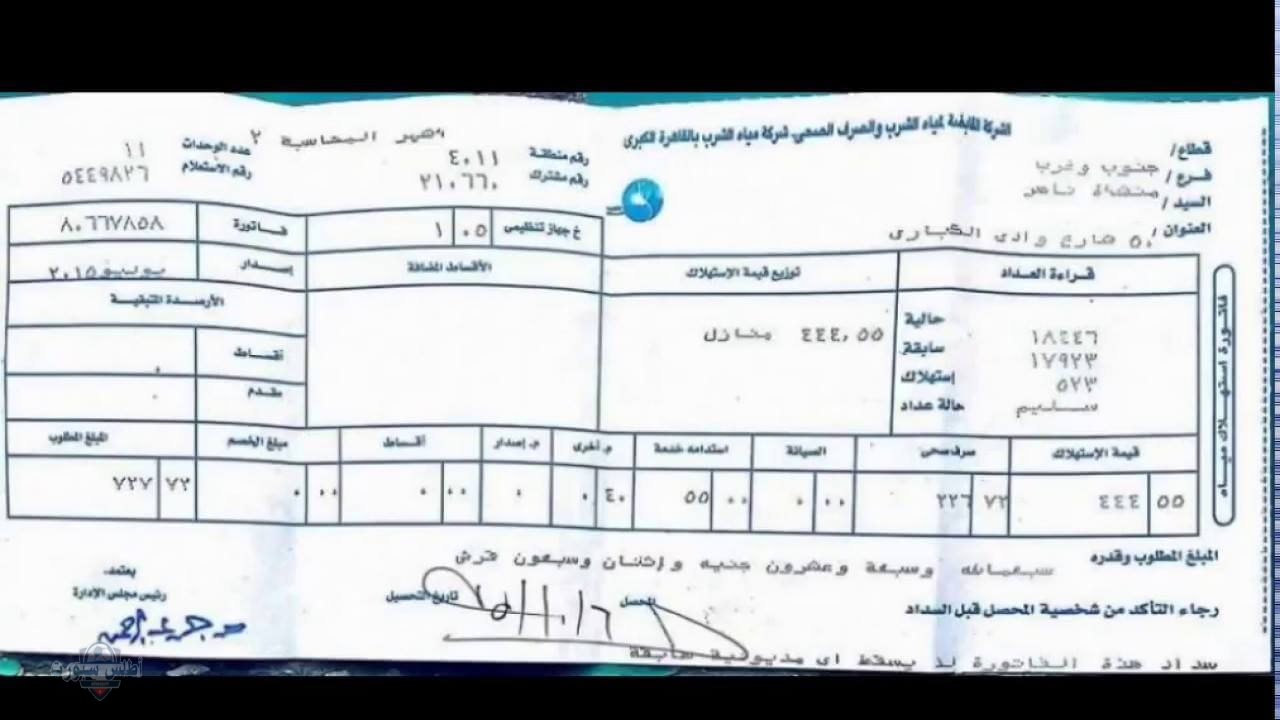 الشركة القابضة لمياء الشرب والصرف الصحى شركة مياه الشرب بالقاهرة الكبرى
قطاع/
فرع/ جنوب وغرب
السيد/ منشاة ناصر
العنوان/ ٥٠ شارع وادى الكبارى
رقم منطقة ٤٠١١
رقم مشترك ٢١٠٦٦٠
شهر المحاسبة ٢
عدد الوحدات ١١
رقم الاستعلام ٥٤٤٩٨٢٦
خ جهاز تنظيمى ٠٥ ١
فاتورة ٨٠٦٦٧٨٥٨
إصدار يوليو ٢٠١٥
قراءة العداد
توزيع قيمة الإستهلاك
الأقساط المضافة
الأرصدة المتبقية
حالية ١٨٤٤٦
سابقة ١٧٩٢٣
إستهلاك ٥٢٣
حالة عداد سليم
٤٤٤,٥٥ منازل
أقساط ٠
مقدم ٠
فاتورة استهلاك مياه
قيمة الإستهلاك
صرف صحى
الصيانة
استدامه خدمة
م. أخرى
م. إصدار
أقساط
مبلغ الخصم
المبلغ المطلوب
٥٥ ٤٤٤
٧٢ ٢٢٦
٠٠ ٠
٠٠ ٥٥
٤٠ ٠
٠
٠٠ ٠
٠٠ ٠
٧٢ ٧٢٧
المبلغ المطلوب وقدره سبعمائه وسبعة وعشرون جنيه وإثنان وسبعون قرش
رجاء التأكد من شخصية المحصل قبل السداد
المحصل
تاريخ التحصيل
يعتمد
رئيس مجلس الإدارة
سداد هذة الفاتورة لا يسقط اى مديونية سابقة
أطلس سبورت